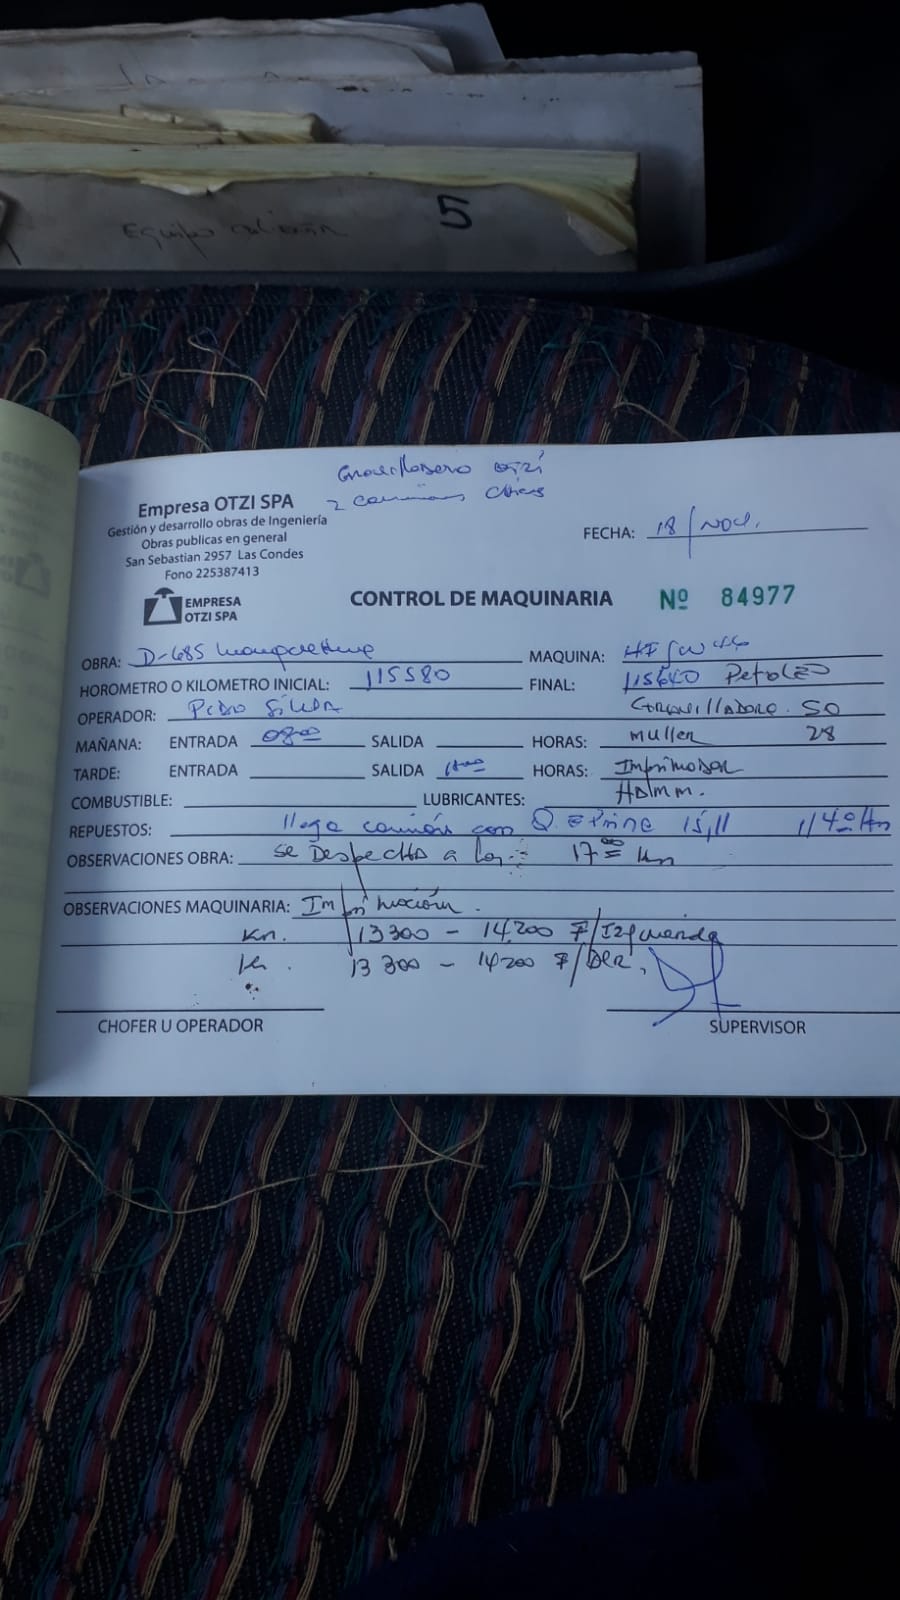 5
Equipo
Gravilladero OTZI
2 camiones chicos
Empresa OTZI SPA
Gestión y desarrollo obras de Ingeniería
Obras publicas en general
San Sebastian 2957 Las Condes
Fono 225387413
EMPRESA
OTZI SPA
FECHA: 18/Nov.
CONTROL DE MAQUINARIA Nº 84977
OBRA: D-685 MAQUINA:
HOROMETRO O KILOMETRO INICIAL: 115580 FINAL: 115640 Petroleo
OPERADOR: Pedro Silva Gravilladora. 50
MAÑANA: ENTRADA 08:00 SALIDA HORAS: Muller 28
TARDE: ENTRADA SALIDA HORAS: Imprimador
COMBUSTIBLE: LUBRICANTES: Hamm.
REPUESTOS: llega camión con 15,11
OBSERVACIONES OBRA: se Despacha a las 17:00
OBSERVACIONES MAQUINARIA: Imprimación.
Km. 13300 - 14.200 F/Izquierda
Km. 13 300 - 14200 F/Der.
CHOFER U OPERADOR SUPERVISOR